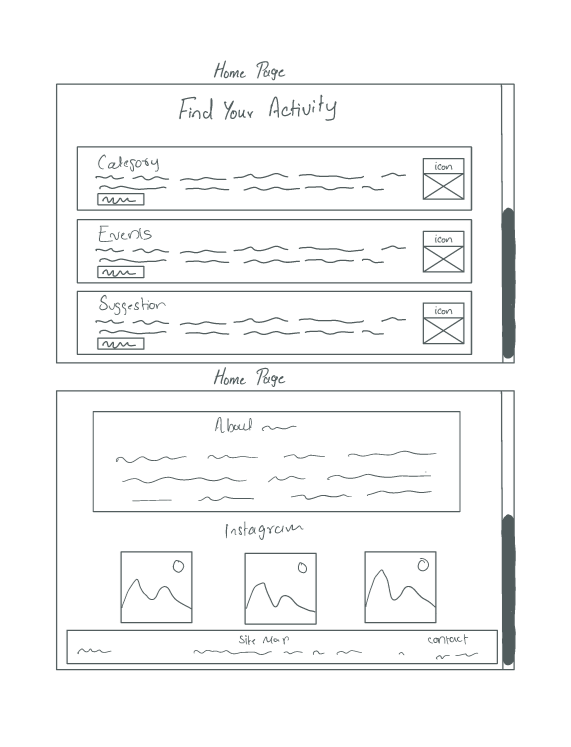 Home Page
Find Your Activity
Category
icon
Events
icon
Suggestion
icon
Home Page
About
Instagram
Site Map
contact